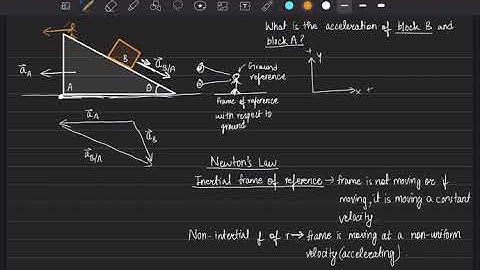 What is the acceleration of block B and
block A?
B
a_B/A
a_A
A
θ
Ground
reference
frame of reference
with respect to
ground
y
x
+
+
a_A
a_B
a_B/A
Newton's Law
Inertial frame of reference → frame is not moving or if
moving, it is moving a constant
velocity
Non-inertial f of r → frame is moving at a non-uniform
velocity (accelerating).